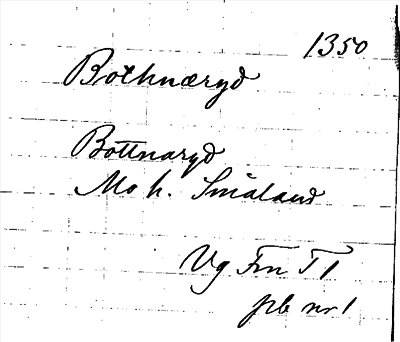 1350
Bothnæryd
Bottnaryd
Mo h. Småland
Vg Fm T 1
pb nr 1